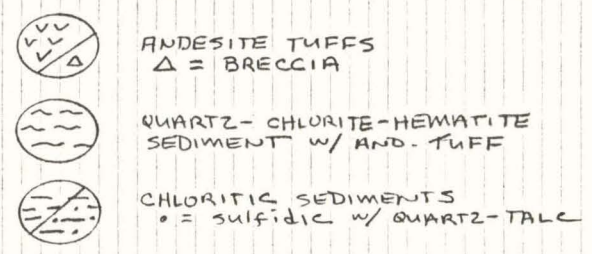 ANDESITE TUFFS
Δ = BRECCIA
QUARTZ-CHLORITE-HEMATITE
SEDIMENT w/ AND. TUFF
CHLORITIC SEDIMENTS
• = sulfidic w/ QUARTZ-TALC